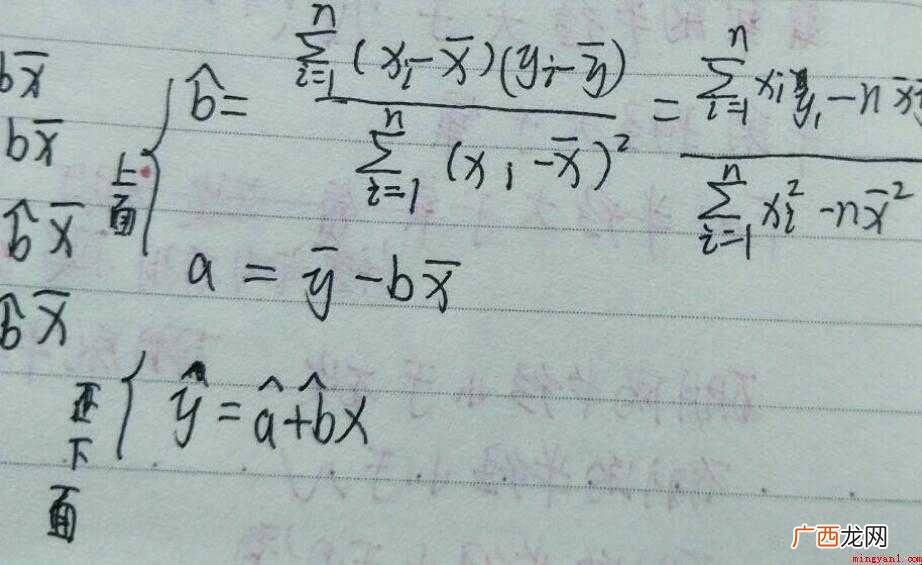 bx̄
bx̄
b̂x̄
b̂x̄
上面
b̂ = ∑ⁿᵢ₌₁ (xᵢ-x̄)(yᵢ-ȳ) / ∑ⁿᵢ₌₁ (xᵢ-x̄)² = ∑ⁿᵢ₌₁ xᵢyᵢ-nx̄ / ∑ⁿᵢ₌₁ xᵢ²-nx̄²
a = ȳ-bx̄
下面
ŷ = â+b̂x
广西龙网
mingyan1.com